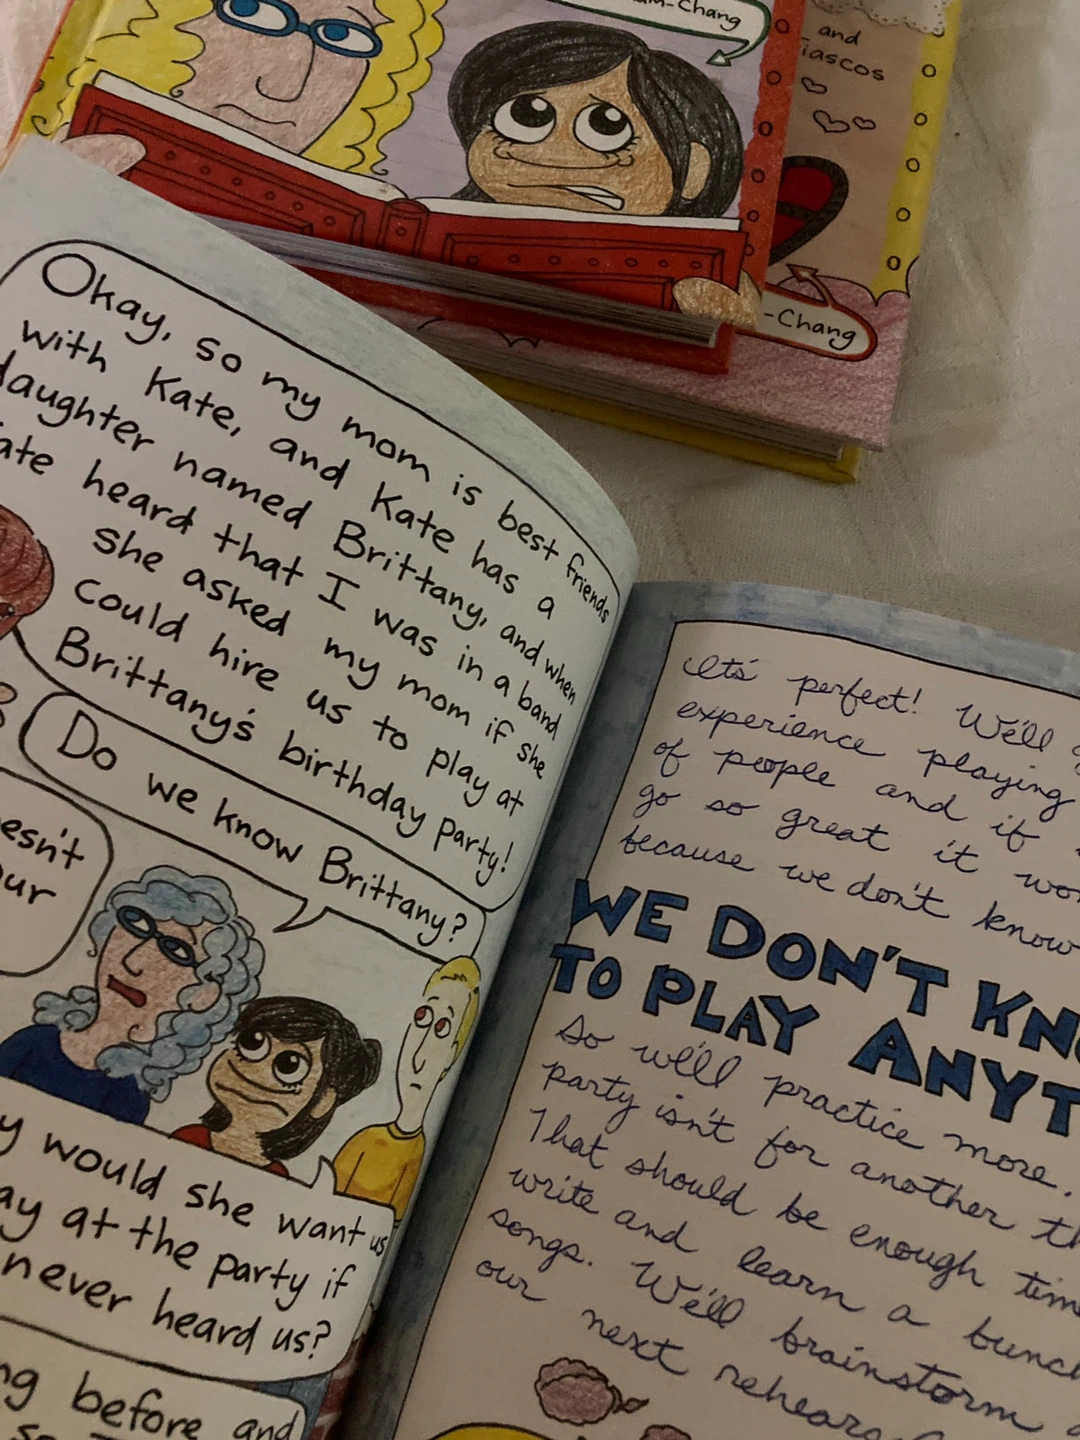 am-Chang
and
iascos
-Chang
Okay, so my mom is best friends
with Kate, and Kate has a
daughter named Brittany, and when
ate heard that I was in a band
she asked my mom if she
could hire us to play at
Brittany's birthday party!
Do we know Brittany?
esn't
our
y would she want us
ay at the party if
never heard us?
ng before and
It's perfect! We'll
experience playing
of people and if
go so great it
because we don't know
WE DON'T
TO PLAY
So we'll practice more.
party isn't for another
That should be enough
write and learn a
songs. We'll brainstorm
our next